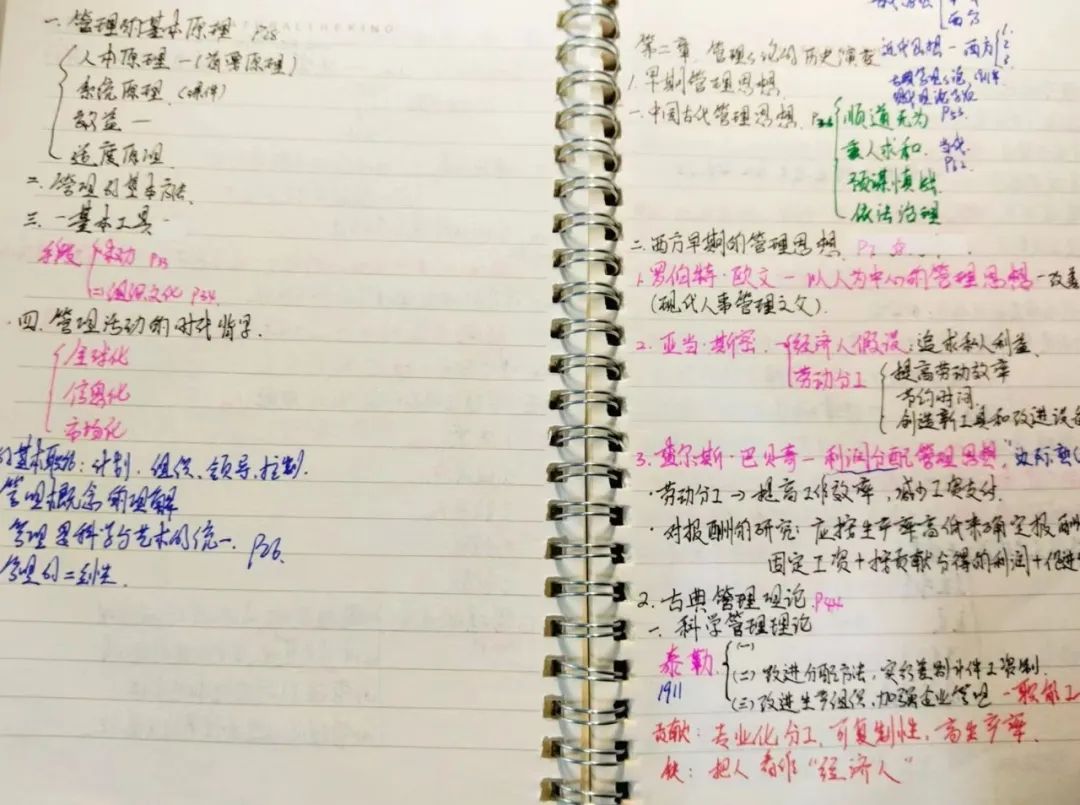 一、管理的基本原理 P28
人本原理 一(首要原理)
系统原理 (课件)
效益 一
适度原理
二、管理的基本方法
三、一基本工具一
手段
P33
(二)组织文化 P34
四、管理活动的时代背景
全球化
信息化
市场化
的基本职能:计划、组织、领导、控制
管理概念的理解
管理是科学与艺术的统一 P26
管理的二重性
西方
第二章 管理理论的历史演变
近代思想 — 西方 1. 2. 3.
1.早期管理思想
一.中国古代管理思想
顺道无为 P53
重人求和 当代
预谋慎战 P62
依法治理
二.西方早期的管理思想
1.罗伯特·欧文 — 以人为中心的管理思想 — 改善
(现代人事管理之父)
2.亚当·斯密
经济人假设:追求私人利益
劳动分工
提高劳动效率
节约时间
创造新工具和改进设备
3.查尔斯·巴贝奇 — 利润分配管理思想
·劳动分工 → 提高工作效率,减少工资支付
·对报酬的研究:应按生产率高低来确定报酬
固定工资+按贡献分得的利润+促进
2.古典管理理论 P44
一、科学管理理论
泰勒 (一)
(二)改进分配方法,实行差别计件工资制
1911 (三)改进生产组织,加强企业管理 —职能工
贡献:专业化分工,可复制性,高生产率
缺:把人看作“经济人”